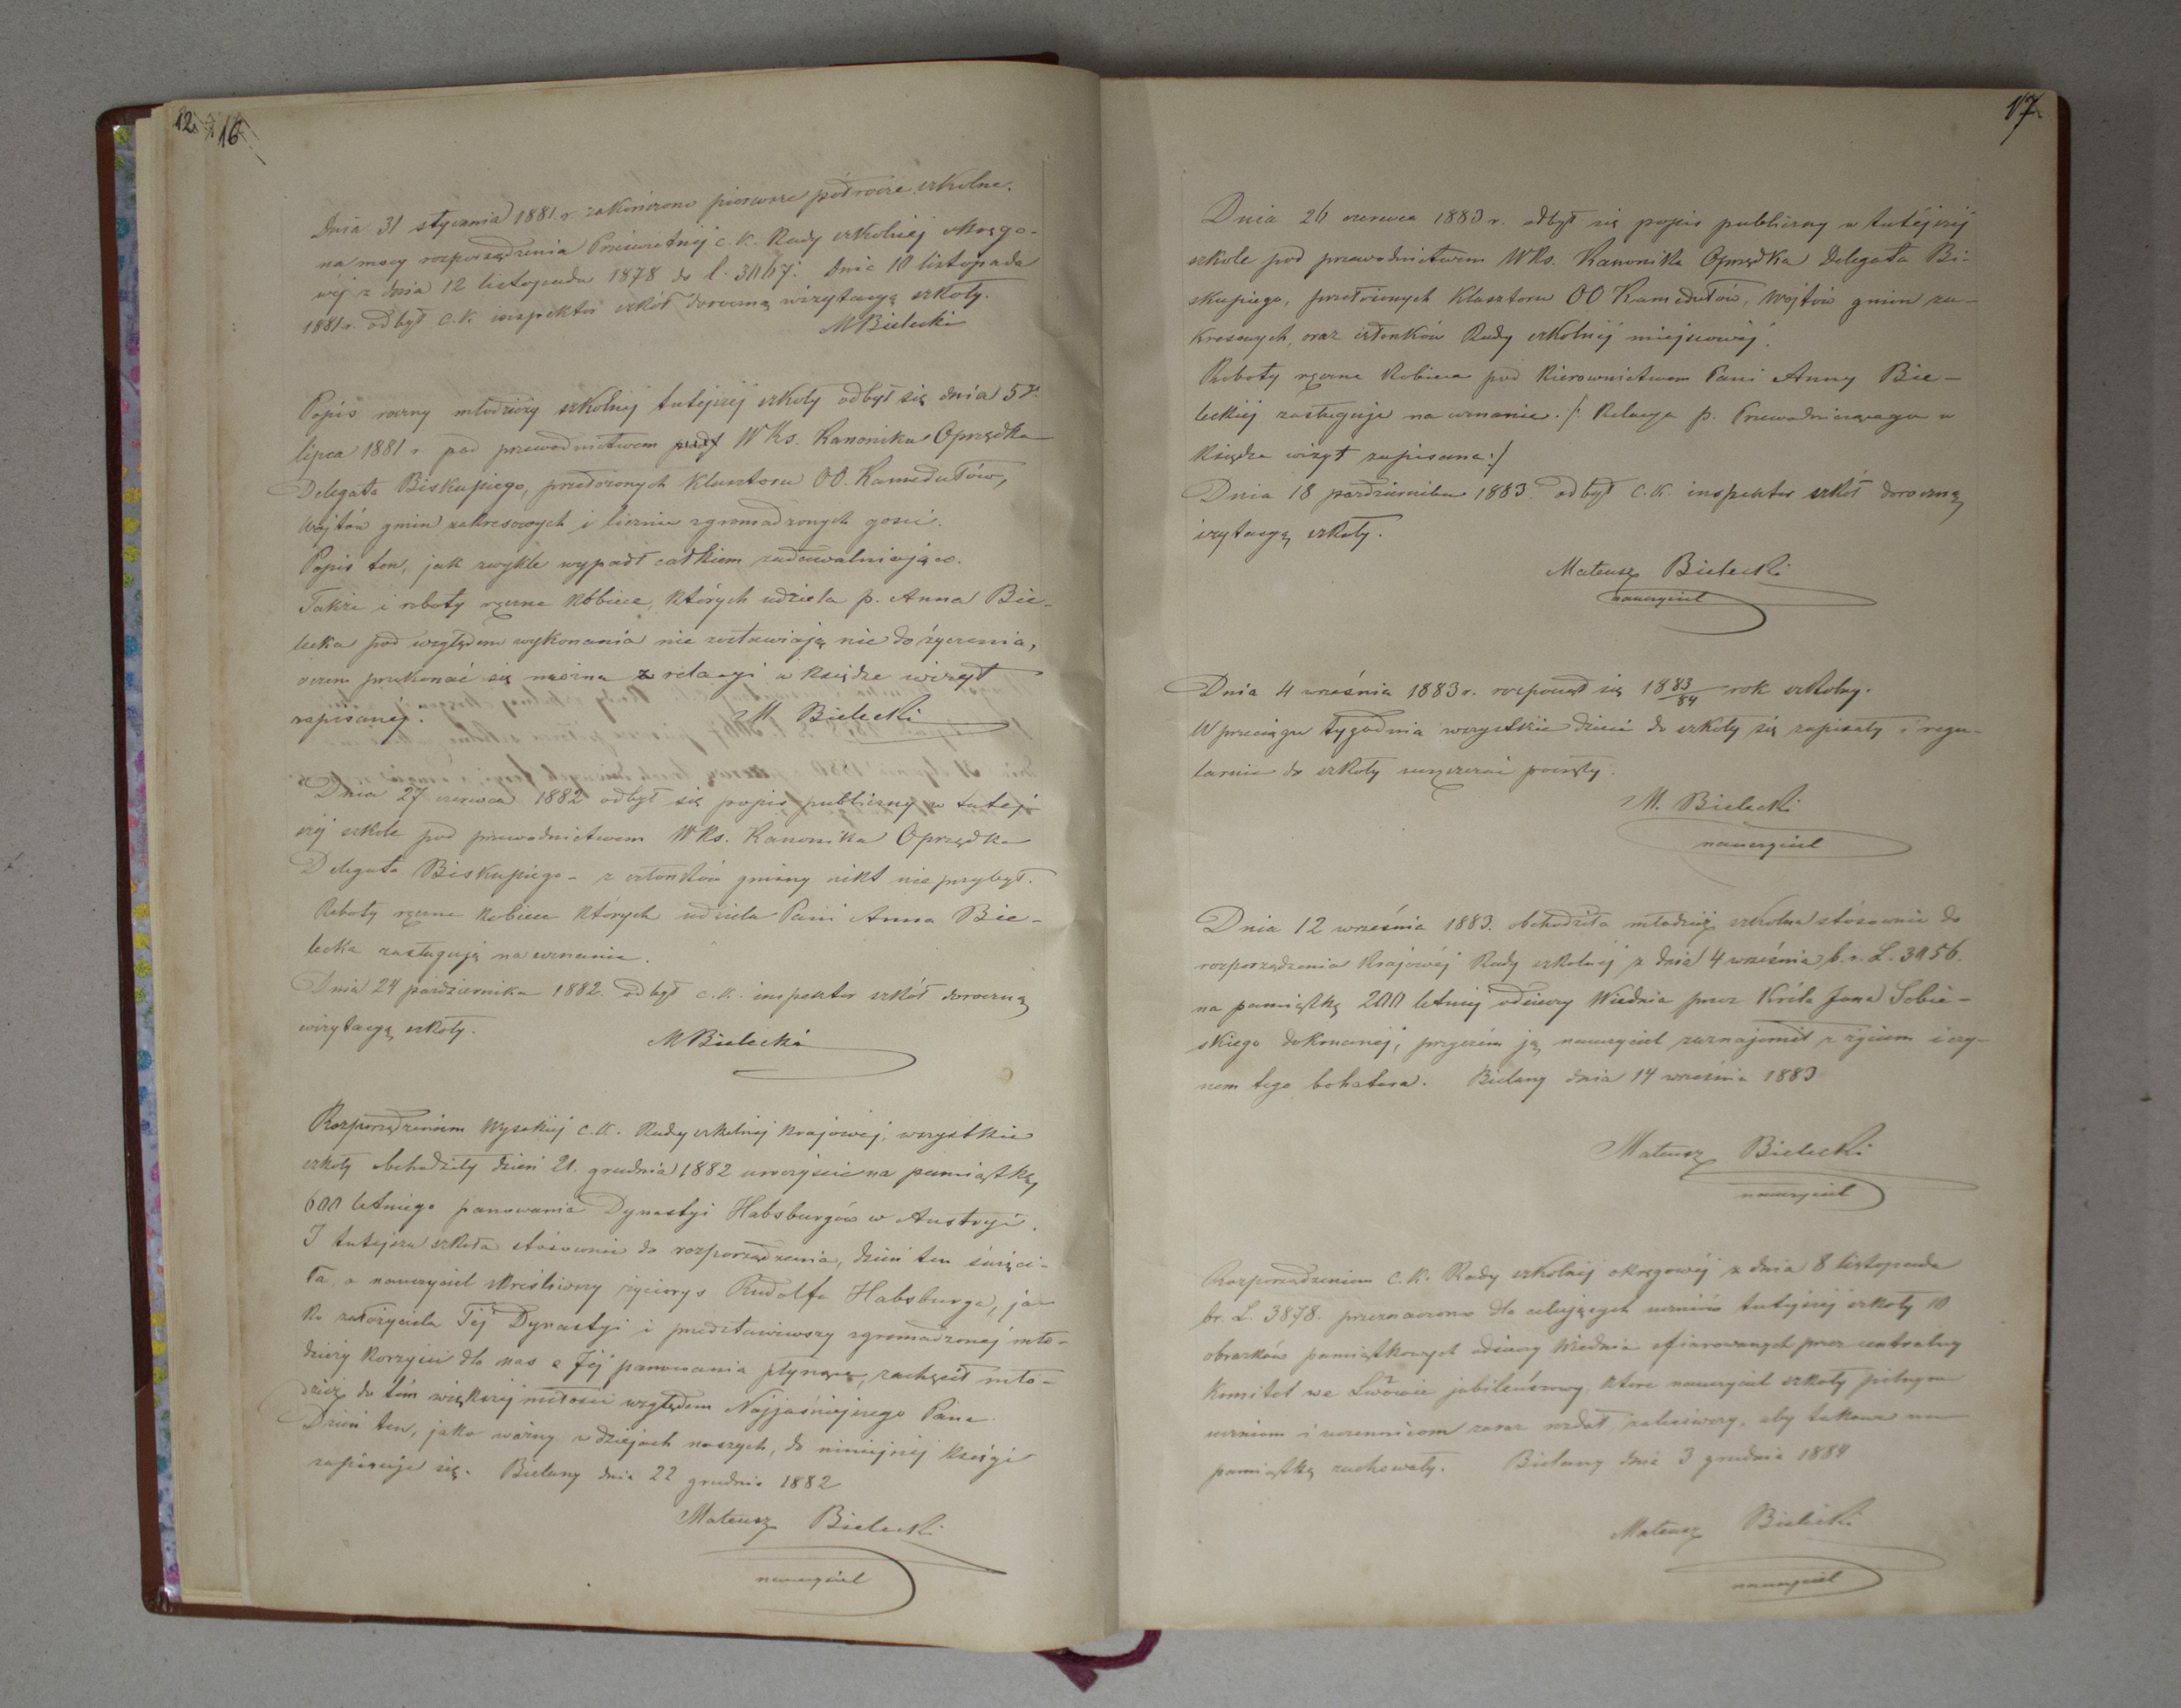 12. 16
Dnia 31 stycznia 1881 r. zakończono pierwsze półrocze szkolne.
na mocy rozporządzenia Prześwietnej c.k. Rady szkolnej okręgo-
wej z dnia 12 listopada 1878 do l. 3067. Dnia 10 listopada
1881 r. odbył c.k. inspektor szkół doroczną wizytacyą szkoły.
M Bielecki
Popis roczny młodzieży szkolnej tutejszej szkoły odbył się dnia 5go
lipca 1881 r. pod przewodnictwem WKs. Kanonika Oprządka
Delegata Biskupiego, przełożonych Klasztoru OO. Kamedułów,
Wójtów gmin zakresowych i licznie zgromadzonych gości.
Popis ten, jak zwykle wypadł całkiem zadawalniająco.
Także i roboty ręczne kobiece, których udziela p. Anna Bie-
lecka pod względem wykonania nie zostawiają nic do życzenia,
o czem przekonać się można z relacyi w księdze wizyt
zapisanej. M. Bielecki
Dnia 27 czerwca 1882 odbył się popis publiczny w tutej-
szej szkole pod przewodnictwem WKs. Kanonika Oprządka
Delegata Biskupiego – z członków gminy nikt nie przybył.
Roboty ręczne kobiece których udziela Pani Anna Bie-
lecka zasługują na uznanie.
Dnia 24 października 1882. odbył c.k. inspektor szkół doroczną
wizytacyą szkoły.
M Bielecki
Rozporządzeniem Wysokiej c.k. Rady szkolnej krajowej, wszystkie
szkoły obchodziły dzień 21. grudnia 1882 uroczyście na pamiątkę,
600 letniego panowania Dynastyi Habsburgów w Austryi.
I tutejsza szkoła stósownie do rozporządzenia, dzień ten święci-
ła, a nauczyciel skreśliwszy życiorys Rudolfa Habsburga, ja-
ko założyciela Tej Dynastyi i przedstawiwszy zgromadzonej mło-
dzieży korzyści dla nas z Jej panowania płynące, zachęcił mło-
dzież do tém większej miłości względem Najjaśniejszego Pana.
Dzień ten, jako ważny w dziejach naszych, do niniejszej księgi
zapisuje się. Bielany dnia 22 grudnia 1882
Mateusz Bielecki
nauczyciel
17
Dnia 26 czerwca 1883 r. odbył się popis publiczny w tutéjszéj
szkole pod przewodnictwem WKs. Kanonika Oprządka Delegata Bi-
skupiego, przełożonych Klasztoru OO Kamedułów, Wójtów gmin za-
kresowych, oraz członków Rady szkolnéj miejscowéj.
Roboty ręczne kobiece pod kierownictwem Pani Anny Bie-
leckiéj zasługuje na uznanie. /: Relacya p. Przewodniczącego w
Księdze wizyt zapisana :/
Dnia 18 października 1883. odbył c.k. inspektor szkół doroczną
izytacyą szkoły.
Mateusz Bielecki
nauczyciel
Dnia 4 września 1883 r. rozpoczął się 1883/84 rok szkolny.
W przeciągu tygodnia wszystkie dzieci do szkoły się zapisały i regu-
larnie do szkoły uczęszczać poczęły.
M. Bielecki
nauczyciel
Dnia 12 września 1883. obchodziła młodzież szkolna stósownie do
rozporządzenia Krajowéj Rady szkolnéj z dnia 4 września b.r. L. 3056.
na pamiątkę 200 letniej odsieczy Wiednia przez Króla Jana Sobie-
skiego dokonanéj, przyczém ją nauczyciel zaznajomił z życiem i czy-
nem tego bohatera. Bielany dnia 14 września 1883
Mateusz Bielecki
nauczyciel
Rozporządzeniem c.k. Rady szkolnéj okręgowéj z dnia 8 listopada
br. L. 3878. przeznaczono dla celujących uczniów tutejszéj szkoły 10
obrazków pamiątkowych odsieczy Wiednia ofiarowanych przez centralny
Komitet we Lwowie jubileuszowy, które nauczyciel szkoły pilnym
uczniom i uczennicom zaraz rozdał, zaleciwszy, aby takowe na
pamiątkę zachowały. Bielany dnia 3 grudnia 1884
Mateusz Bielecki
nauczyciel